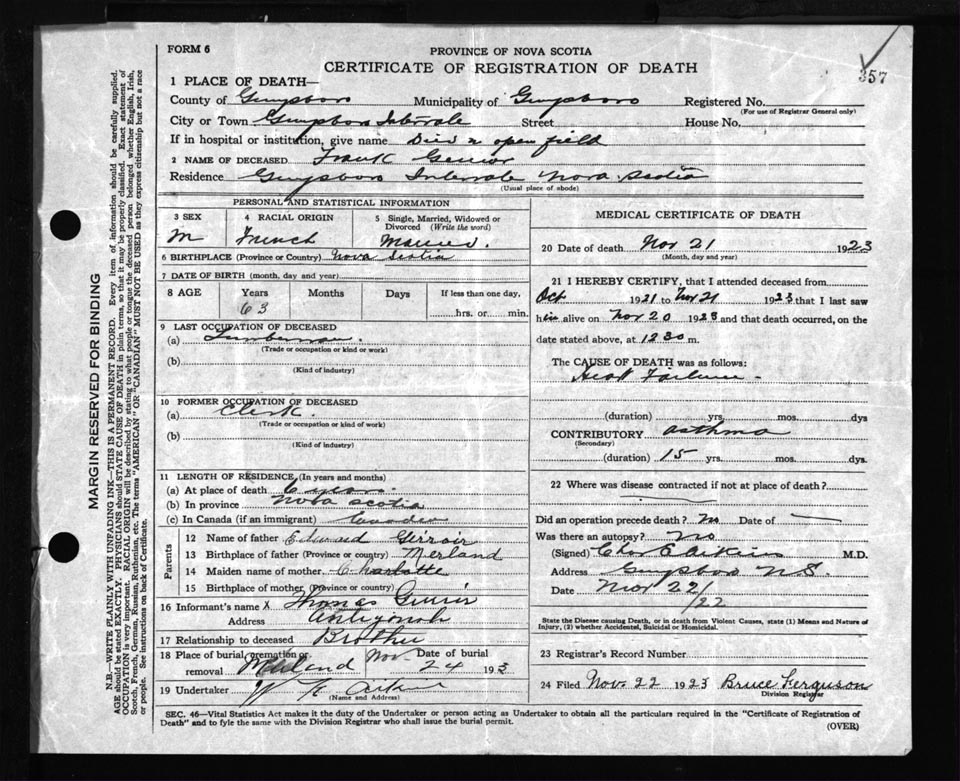 FORM 6
PROVINCE OF NOVA SCOTIA
CERTIFICATE OF REGISTRATION OF DEATH
357
1 PLACE OF DEATH—
County of Guysboro Municipality of Guysboro Registered No.
(For use of Registrar General only)
City or Town Guysboro Intervale Street House No.
If in hospital or institution, give name Died in open field
2 NAME OF DECEASED Frank
Residence Guysboro Intervale Nova Scotia
(Usual place of abode)
PERSONAL AND STATISTICAL INFORMATION
3 SEX
M
4 RACIAL ORIGIN
French
5 Single, Married, Widowed or Divorced (Write the word)
Married.
6 BIRTHPLACE (Province or Country) Nova Scotia
7 DATE OF BIRTH (month, day and year)
8 AGE Years Months Days If less than one day,
63
hrs. or min.
9 LAST OCCUPATION OF DECEASED
(a) Lumberman.
(Trade or occupation or kind or work)
(b)
(Kind of industry)
10 FORMER OCCUPATION OF DECEASED
(a) Clerk.
(Trade or occupation or kind of work)
(b)
(Kind of industry)
11 LENGTH OF RESIDENCE (In years and months)
(a) At place of death 6 years.
(b) In province Nova Scotia
(c) In Canada (if an immigrant) Canada
Parents
12 Name of father Edward Gerroir
13 Birthplace of father (Province or country) Merland
14 Maiden name of mother Charlotte
15 Birthplace of mother (Province or country)
16 Informant's name X Thomas
Address Antigonish
17 Relationship to deceased Brother
18 Place of burial, cremation or removal Merland Date of burial Nov 24 1923
19 Undertaker
(Name and Address)
MEDICAL CERTIFICATE OF DEATH
20 Date of death Nov 21 1923
(Month, day and year)
21 I HEREBY CERTIFY, that I attended deceased from
Oct 1921 to Nov 21 1923 that I last saw
him alive on Nov 20 1923 and that death occurred, on the
date stated above, at 12 30 m.
The CAUSE OF DEATH was as follows:
Heart Failure -
(duration) yrs. mos. dys
CONTRIBUTORY asthma
(Secondary)
(duration) 15 yrs. mos. dys.
22 Where was disease contracted if not at place of death?
Did an operation precede death? No Date of —
Was there an autopsy? No
(Signed) Chas E Aikins M.D.
Address Guysboro N.S.
Date Nov 22/
/22
State the Disease causing Death, or in death from Violent Causes, state (1) Means and Nature of Injury, (2) whether Accidental, Suicidal or Homicidal.
23 Registrar's Record Number
24 Filed Nov. 22 1923 Bruce Ferguson
Division Registrar
SEC. 46—Vital Statistics Act makes it the duty of the Undertaker or person acting as Undertaker to obtain all the particulars required in the "Certificate of Registration of
Death" and to fyle the same with the Division Registrar who shall issue the burial permit.
(OVER)
MARGIN RESERVED FOR BINDING
N.B.—WRITE PLAINLY WITH UNFADING INK—THIS IS A PERMANENT RECORD. Every item of information should be carefully supplied.
AGE should be stated EXACTLY. PHYSICIANS should STATE CAUSE OF DEATH in plain terms, so that it may be properly classified. Exact statement of
OCCUPATION is very important. RACIAL ORIGIN will be described by stating to what people or tongue the deceased person belonged whether English, Irish,
Scotch, French, German, Russian, Ruthenian, etc. The terms "AMERICAN" OR "CANADIAN" MUST NOT BE USED as they express citizenship but not a race
or people. See instructions on back of Certificate.